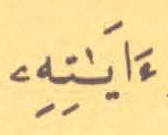 ءَايَٰتِهِۦ